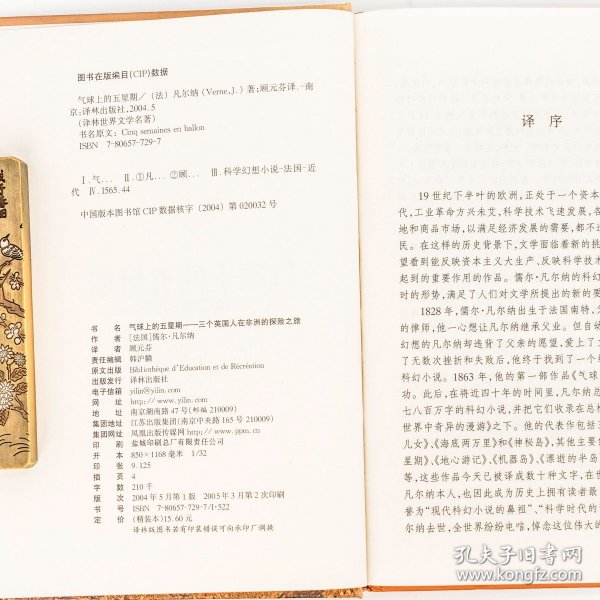 图书在版编目(CIP)数据
气球上的五星期／（法）凡尔纳(Verne,J.)著;顾元芬译.-南
京:译林出版社,2004.5
(译林世界文学名著)
书名原文: Cinq semaines en ballon
ISBN 7-80657-729-7
Ⅰ.气… Ⅱ.①凡…②顾… Ⅲ.科学幻想小说-法国-近
代 Ⅳ.I565.44
中国版本图书馆 CIP 数据核字(2004)第 020032 号
书 名 气球上的五星期——三个英国人在非洲的探险之旅
作 者 [法国]儒尔·凡尔纳
译 者 顾元芬
责任编辑 韩沪麟
原文出版 Bibliothèque d'Education et de Récréation
出版发行 译林出版社
电子信箱 yilin@yilin.com
网 址 http://www.yilin.com
地 址 南京湖南路 47 号(邮编 210009)
集团地址 江苏出版集团(南京中央路 165 号 210009)
集团网址 凤凰出版传媒网 http://www.ppm.cn
印 刷 盐城印刷总厂有限责任公司
开 本 850×1168 毫米 1/32
印 张 9.125
插 页 4
字 数 210 千
版 次 2004 年 5 月第 1 版 2005 年 3 月第 2 次印刷
书 号 ISBN 7-80657-729-7/I·522
定 价 (精装本)15.60 元
译林版图书若有印装错误可向承印厂调换
译 序
19 世纪下半叶的欧洲,正处于一个资本
代,工业革命方兴未艾,科学技术飞速发展,各
地和商品市场,以满足经济发展的需要,都不过
民。在这样的历史背景下,文学面临着新的挑
望看到能反映资本主义大生产、反映科学技术
起到的重要作用的作品。儒尔·凡尔纳的科幻
时的形势,满足了人们对文学所提出的新的要
1828 年,儒尔·凡尔纳出生于法国南特,父
的律师,他一心想让凡尔纳继承父业。但自幼
幻想的凡尔纳却违背了父亲的愿望,爱上了文
了无数次挫折和失败后,他终于找到了一个结
科幻小说。1863 年,他的第一部作品《气球
功。此后,在将近四十年的时间里,凡尔纳总
七八百万字的科幻小说,并把它们收录在总标
世界中奇异的漫游》之下。他的代表作包括三
儿女》、《海底两万里》和《神秘岛》,其他主要
星期》、《地心游记》、《机器岛》、《漂逝的半岛
等,这些作品今天已被译成数十种文字,在世
凡尔纳本人,也因此成为历史上拥有读者最
誉为“现代科幻小说的鼻祖”、“科学时代的
尔纳去世,全世界纷纷电唁,悼念这位伟大的
孔夫子旧书网
www.kongfz.com